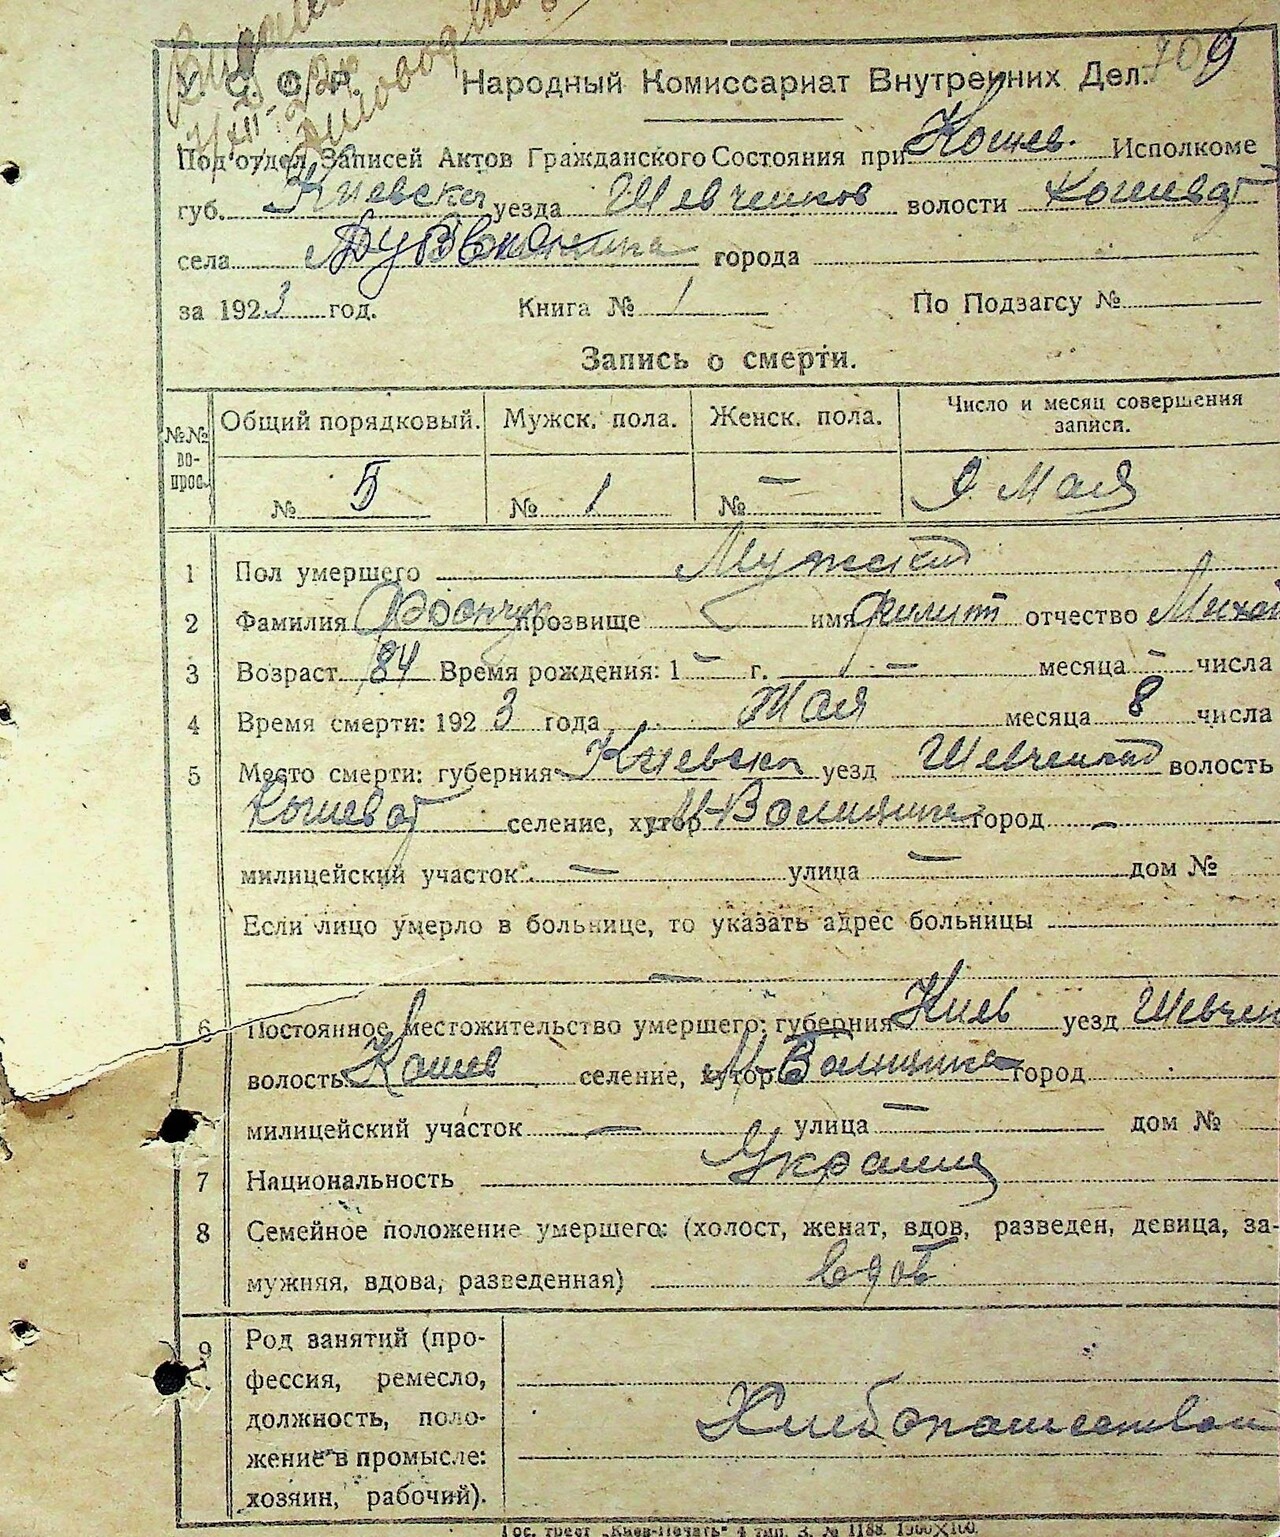 У С С Р Народный Комиссариат Внутренних Дел. 709
Под'отдел Записей Актов Гражданского Состояния при Кошев. Исполкоме
губ. Киевска уезда Шевченков волости Кошеват
села города
за 1923 год. Книга № 1 По Подзагсу №
Запись о смерти.
№№ вопрос. Общий порядковый. Мужск. пола. Женск. пола. Число и месяц совершения записи.
№ 5 № 1 № — 9 Мая
1 Пол умершего Мужской
2 Фамилия прозвище — имя Филип отчество Михай
3 Возраст 84 Время рождения: 1 — г. — месяца — числа
4 Время смерти: 1923 года Мая месяца 8 числа
5 Место смерти: губерния Киевска уезд Шевченков волость
Кошеват селение, хутор М-Волнянка город —
милицейский участок — улица — дом №
Если лицо умерло в больнице, то указать адрес больницы
—
6 Постоянное местожительство умершего: губерния Киев уезд Шевчен
волость Кошев селение, хутор город
милицейский участок — улица — дом №
7 Национальность Украинец
8 Семейное положение умершего: (холост, женат, вдов, разведен, девица, за-
мужняя, вдова, разведенная) вдов
9 Род занятий (про-
фессия, ремесло,
должность, поло- Хлебопашество
жение в промысле:
хозяин, рабочий).
Гос. трест „Киев-Печать" 4 тип. З. № 1188. 1900×100.